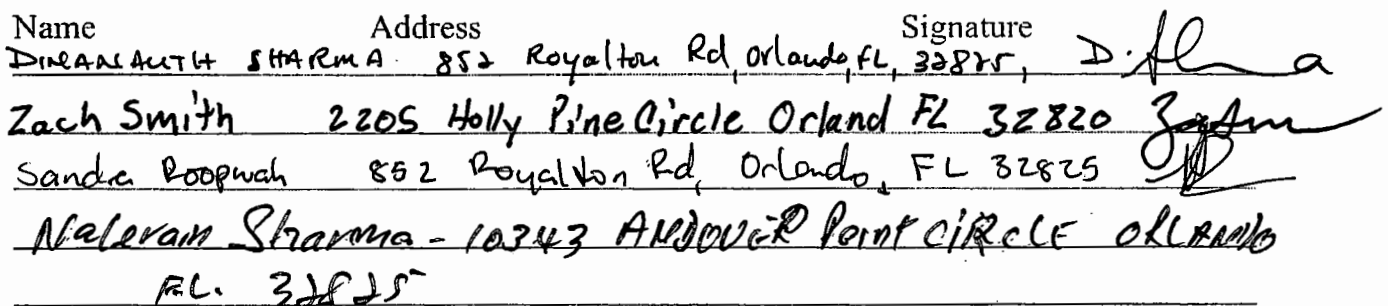 Name Address Signature
SHARMA 852 Royalton Rd, Orlando, FL, 32825,
Zach Smith 2205 Holly Pine Circle Orland FL 32820
Sandra Roopwah 852 Royalton Rd, Orlando, FL 32825
Naleram Sharma - 10343 ANDOVER Point CIRCLE ORLANDO
FL. 32825